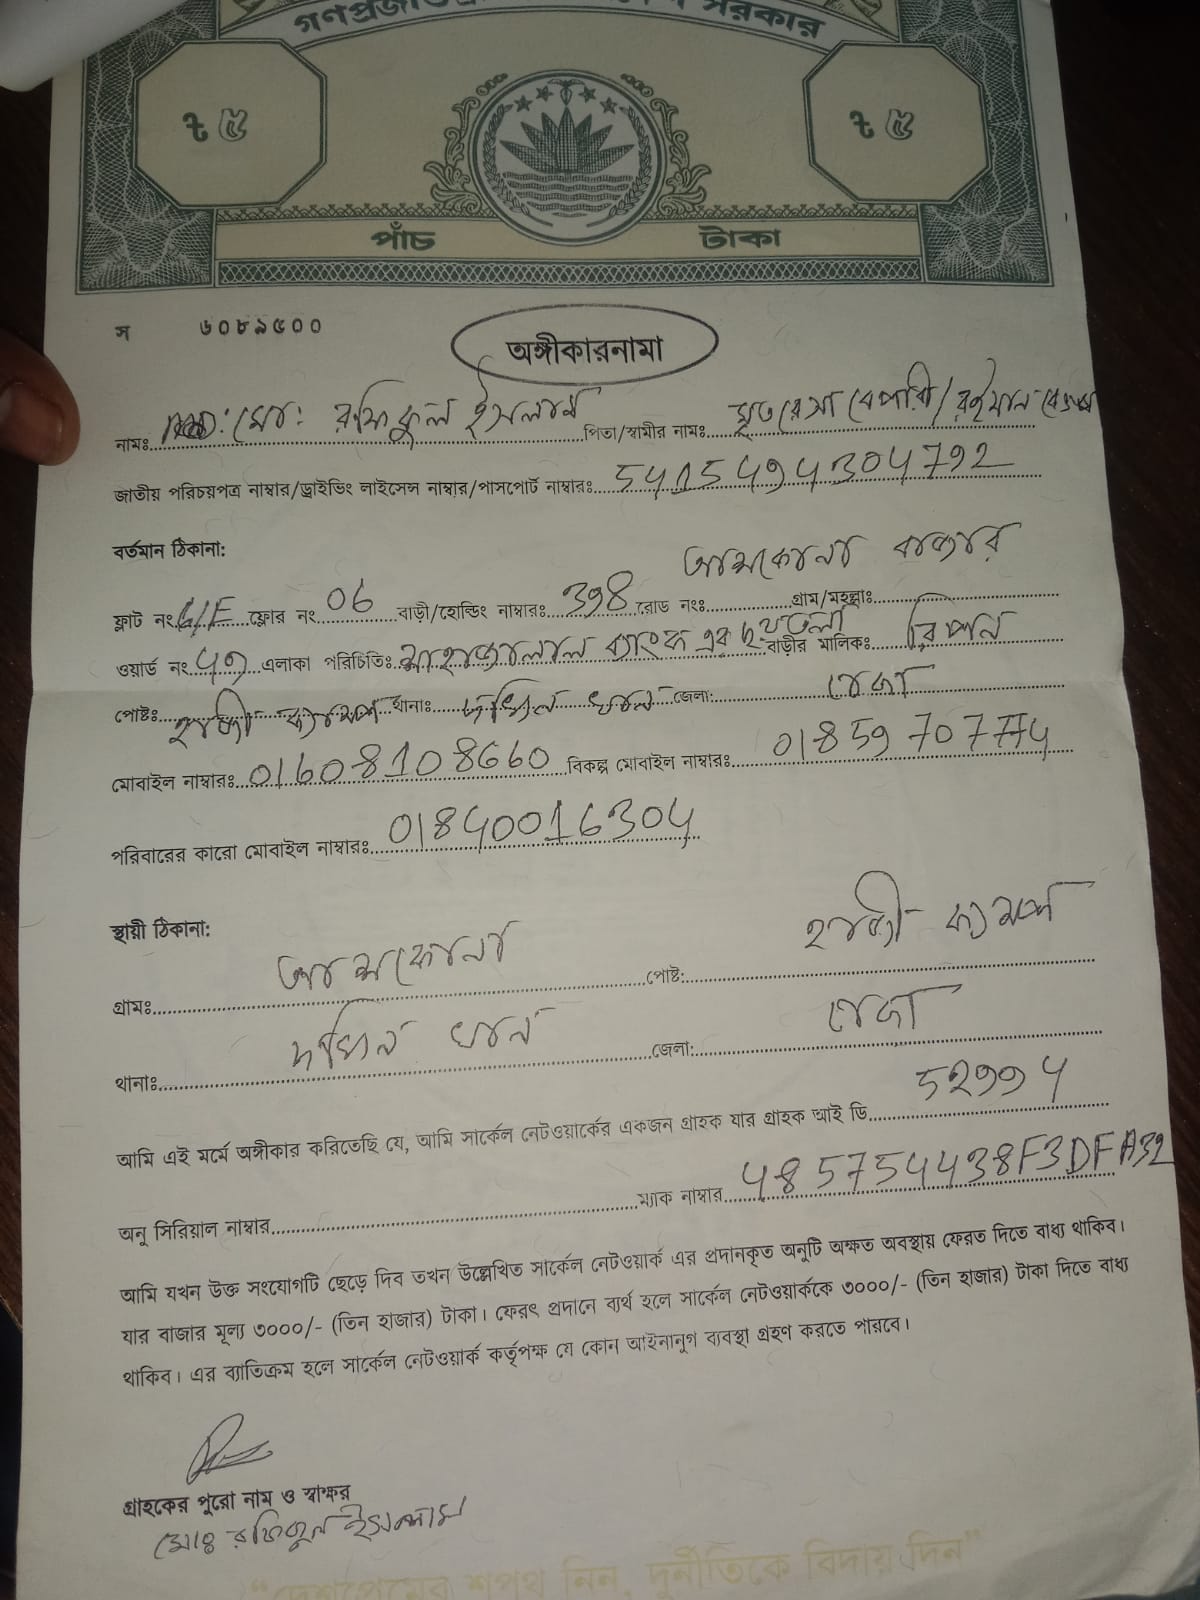 গণপ্রজাতন্ত্রী বাংলাদেশ সরকার
ট ৫ ট ৫
পাঁচ টাকা
স ৬০৮৯৫০০
অঙ্গীকারনামা
নামঃ মোঃ রফিকুল ইসলাম পিতা/স্বামীর নাম: মৃত রেসা বেপারী/
জাতীয় পরিচয়পত্র নাম্বার/ড্রাইভিং লাইসেন্স নাম্বার/পাসপোর্ট নাম্বারঃ
বর্তমান ঠিকানা:
ফ্লাট নং ফ্লোর নং 06 বাড়ী/হোল্ডিং নাম্বারঃ রোড নংঃ গ্রাম/মহল্লাঃ আশকোনা বাজার
ওয়ার্ড নং এলাকা পরিচিতিঃ শাহজালাল ব্যাংক এর বাড়ীর মালিকঃ রিপন
পোষ্টঃ হাজী ক্যাম্প থানাঃ দক্ষিন খান জেলা: ঢাকা
মোবাইল নাম্বারঃ 01608108660 বিকল্প মোবাইল নাম্বারঃ
পরিবারের কারো মোবাইল নাম্বারঃ 01840016304
স্থায়ী ঠিকানা:
গ্রামঃ আশকোনা পোষ্ট: হাজী ক্যাম্প
থানাঃ দক্ষিন খান জেলা: ঢাকা
আমি এই মর্মে অঙ্গীকার করিতেছি যে, আমি সার্কেল নেটওয়ার্কের একজন গ্রাহক যার গ্রাহক আই ডি
অনু সিরিয়াল নাম্বার ম্যাক নাম্বার 485754438F3DFA32
আমি যখন উক্ত সংযোগটি ছেড়ে দিব তখন উল্লেখিত সার্কেল নেটওয়ার্ক এর প্রদানকৃত অনুটি অক্ষত অবস্থায় ফেরত দিতে বাধ্য থাকিব।
যার বাজার মূল্য ৩০০০/- (তিন হাজার) টাকা। ফেরৎ প্রদানে ব্যর্থ হলে সার্কেল নেটওয়ার্ককে ৩০০০/- (তিন হাজার) টাকা দিতে বাধ্য
থাকিব। এর ব্যাতিক্রম হলে সার্কেল নেটওয়ার্ক কর্তৃপক্ষ যে কোন আইনানুগ ব্যবস্থা গ্রহণ করতে পারবে।
গ্রাহকের পুরো নাম ও স্বাক্ষর
মোঃ রফিকুল ইসলাম
“দেশপ্রেমের শপথ নিন, দুর্নীতিকে বিদায় দিন”